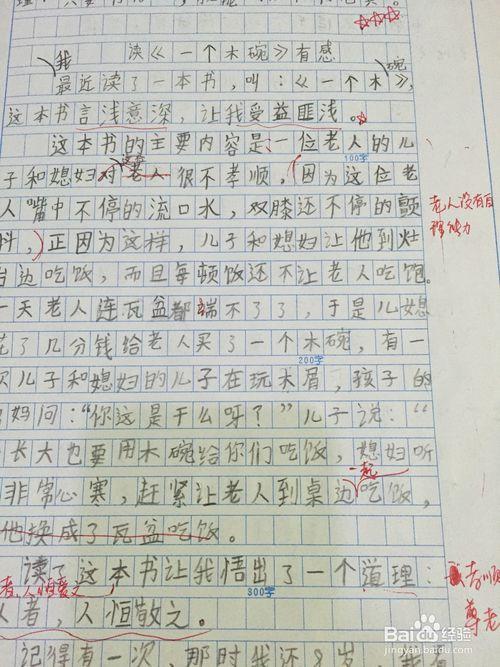 读《一个木碗》有感
我
最近读了一本书，叫：《一个木》，
碗
这本书言浅意深，让我受益匪浅。
这本书的主要内容是，一位老人的儿
100字
子和媳妇对老人很不孝顺，因为这位老
人嘴中不停的流口水，双膝还不停的颤
老人没有自
理能力
抖，正因为这样，儿子和媳妇让他到灶
台边吃饭，而且每顿饭还不让老人吃饱。
一天老人连瓦盆都端不了了，于是儿媳
花了几分钱给老人买了一个木碗，有一
200字
次儿子和媳妇的儿子在玩木屑，孩子的
妈问：“你这是干么呀？”儿子说：“
长大也要用木碗给你们吃饭，媳妇听
一起
非常心寒，赶紧让老人到桌边吃饭，
他换成了瓦盆吃饭。
读了这本书让我悟出了一个道理：
300字
孝顺
尊老
者，人恒爱之
人者，人恒敬之。
记得有一次，那时我还8岁，
Baidu经验
jingyan.baidu.com